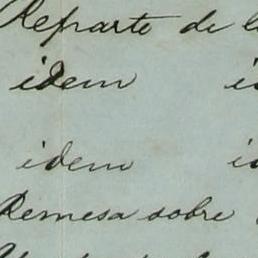 Reparte de
idem
idem
Remesa sobre